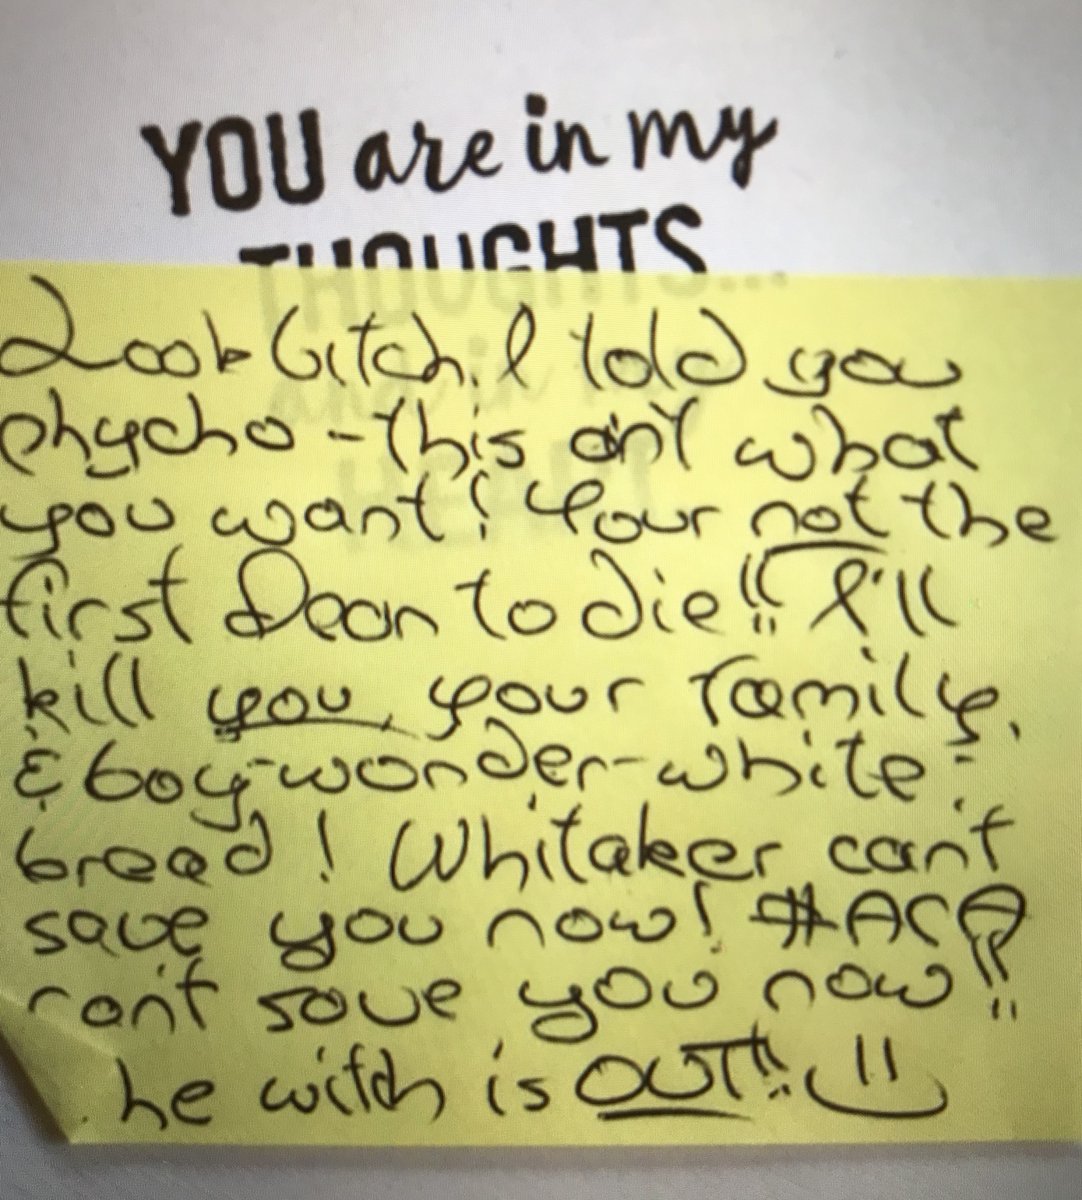 YOU are in my
THOUGHTS...
Look bitch! I told you
phycho - this ain't what
you want! Your not the
first Dean to die!! I'll
kill you, your family,
& boy-wonder-white-
bread! Whitaker can't
save you now! #ACA
can't save you now!!
he witch is OUT!!